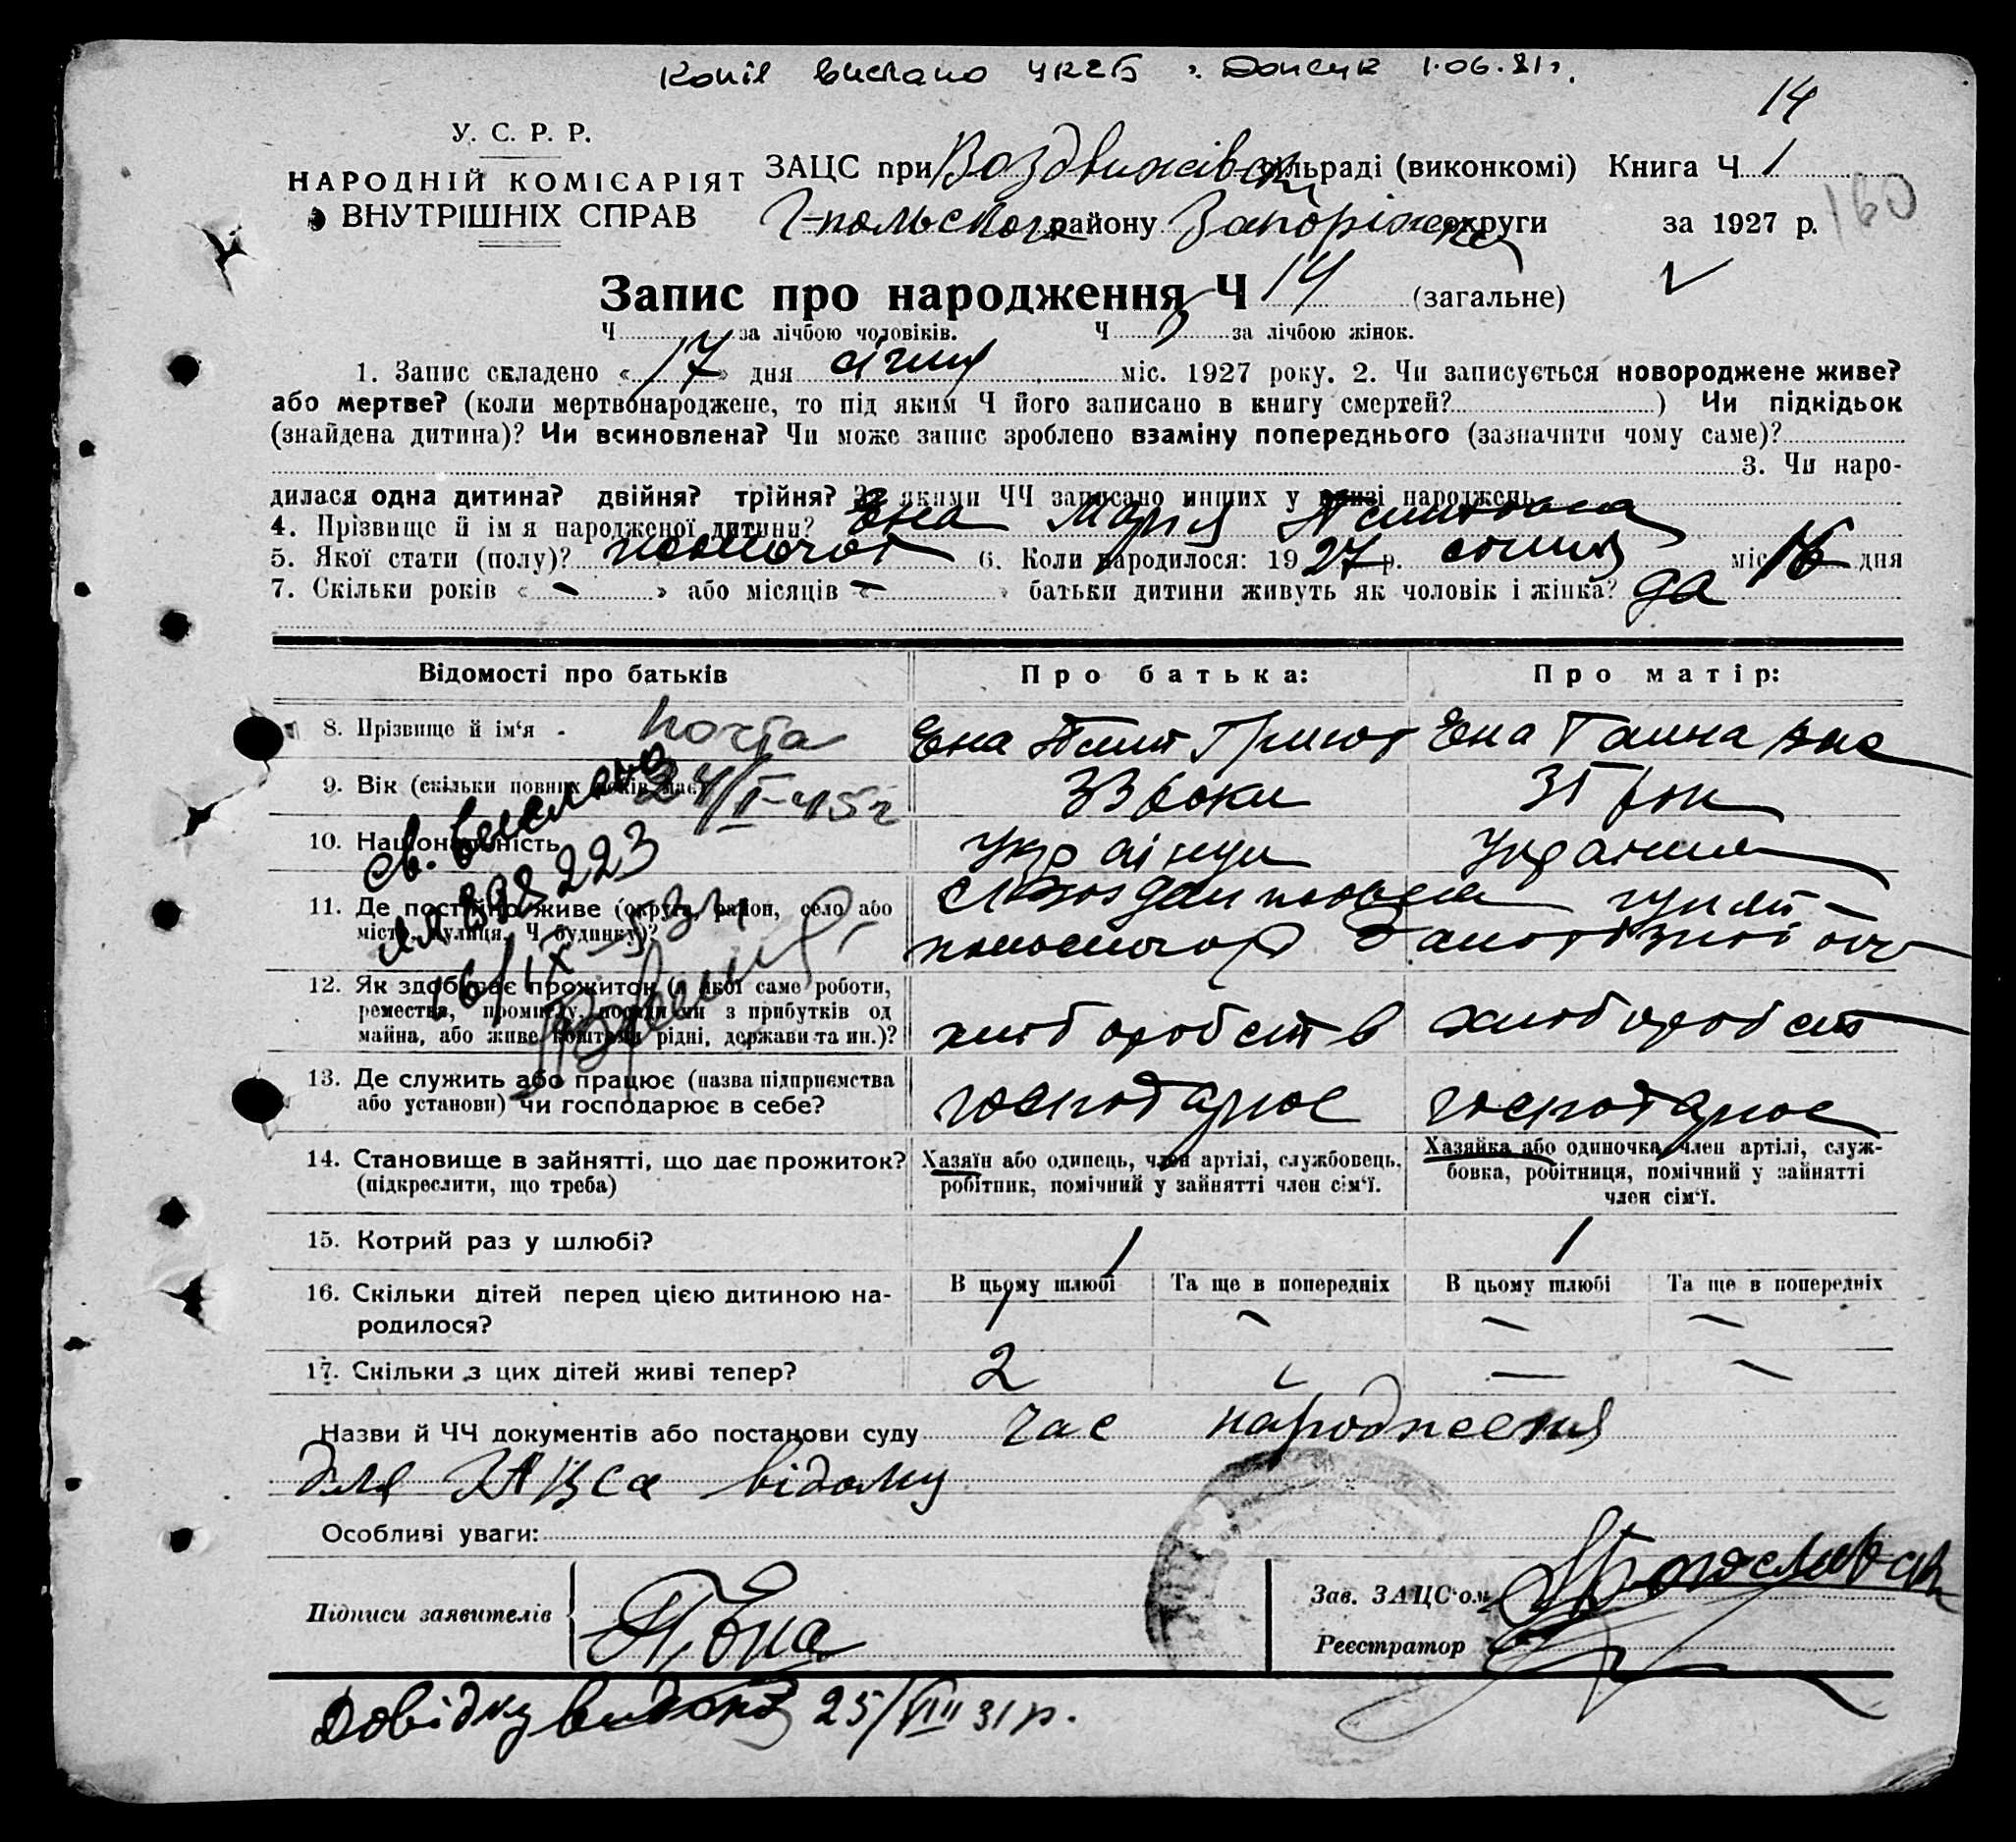 Копія вислано
1.06.81г.
14
У. С. Р. Р.
НАРОДНІЙ КОМІСАРІЯТ
ВНУТРІШНІХ СПРАВ
ЗАЦС при Воздвижівск сільраді (виконкомі) Книга Ч 1
Г-польского району Запоріжск округи за 1927 р.
160
Запис про народження Ч 14 (загальне)
Ч за лічбою чоловіків. Ч за лічбою жінок.
1. Запис складено « 17 » дня січня міс. 1927 року. 2. Чи записується новороджене живе?
або мертве? (коли мертвонароджене, то під яким Ч його записано в книгу смертей? ) Чи підкідьок
(знайдена дитина)? Чи всиновлена? Чи може запис зроблено взаміну попереднього (зазначити чому саме)?
3. Чи наро-
дилася одна дитина? двійня? трійня? За якими ЧЧ записано инших у книзі народжень
4. Прізвище й ім я народженої дитини? Ена Мария
5. Якої стати (полу)? жіночої 6. Коли народилося: 1927 р. січня міс 16 дня
7. Скільки років « - » або місяців « - » батьки дитини живуть як чоловік і жінка? да
Відомості про батьків Про батька: Про матір:
8. Прізвище й ім'я - Почта Ена Григор Ена Ганна Вас
9. Вік (скільки повних років має) 24/I-45г 33 роки 31 рок
10. Національність Українці Українка
св. выслано
898223
11. Де постійно живе (округа, район, село або
місто, вулиця, Ч будинку)?
16/IX-53г
12. Як здобуває прожиток (з якої саме роботи,
ремества, промислу, посади чи з прибутків од
майна, або живе коштами рідні, держави та ин.)?
хліборобств хліборобст
13. Де службить або працює (назва підприємства
або установи) чи господарює в себе?
господарює господарює
14. Становище в зайнятті, що дає прожиток?
(підкреслити, що треба)
Хазяїн або одинець, член артілі, службовець,
робітник, помічний у зайнятті член сім'ї.
Хазяйка або одиночка, член артілі, служ-
бовка, робітниця, помічний у зайнятті
член сім'ї.
15. Котрий раз у шлюбі? 1 1
В цьому шлюбі Та ще в попередніх В цьому шлюбі Та ще в попередніх
16. Скільки дітей перед цією дитиною на-
родилося? 1 - - -
17. Скільки з цих дітей живі тепер? 2 - - -
Назви й ЧЧ документів або постанови суду час народження
для ЗАЦСа відому
Особливі уваги:
Підписи заявителів П. Ена
Зав. ЗАЦС'ом
Реєстратор
Довідку видано 25/VIII 31 р.